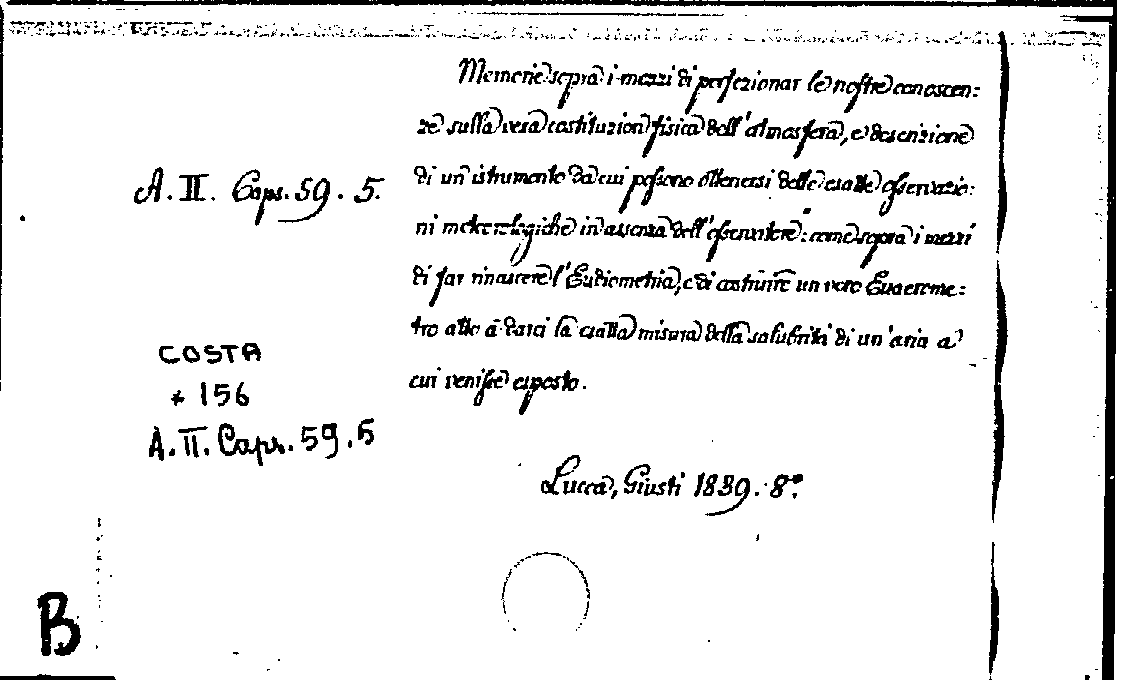 Memorie sopra i mezzi di perfezionar le nostre conoscen:
ze sulla vera costituzion fisica dell'atmosfera, e descrizione
A. II. Caps. 59. 5.
di un istrumento da cui possono ottenersi delle esatte osservazio:
ni meteorologiche in assenza dell'osservatore: come sopra i mezzi
di far rinascere l'Eudiometria, e di costruire un vero Euaerome:
tro atto a darci la esatta misura della salubrità di un'aria a
cui venisse esposto.
COSTA
* 156
A. II. Caps. 59. 5
Lucca, Giusti 1839. 8º.
B